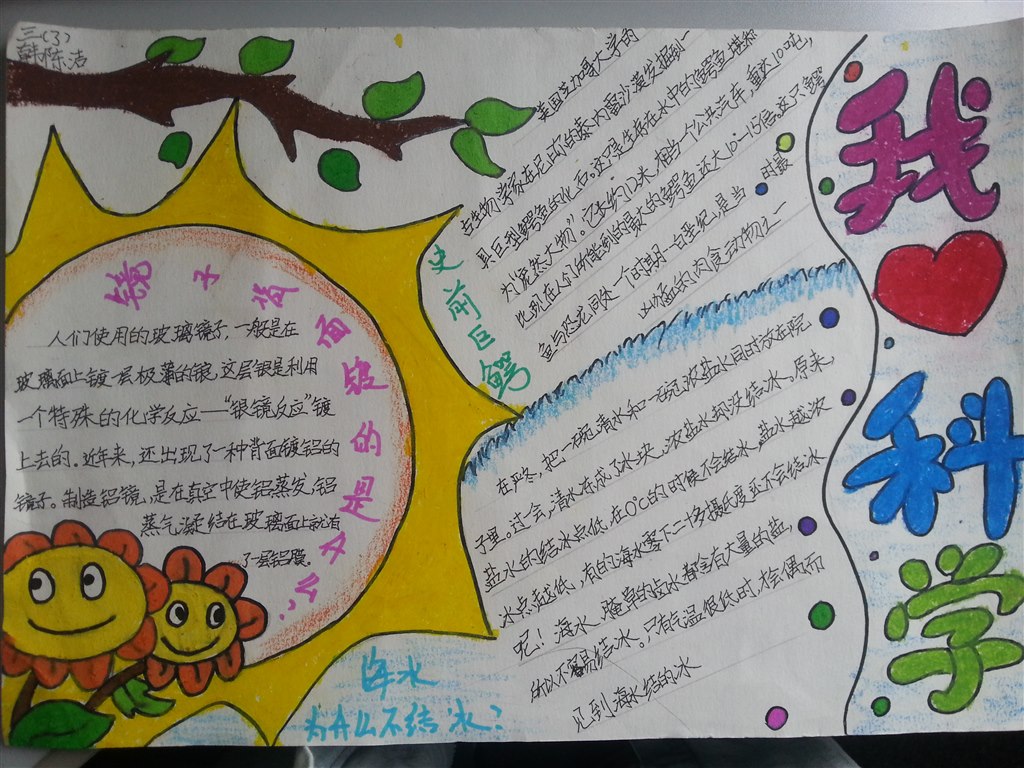 三(3)
韩陈洁
我
科学
镜子背面镀的是什么？
人们使用的玻璃镜子，一般是在
玻璃面上镀一层极薄的银，这层银是利用
一个特殊的化学反应——“银镜反应”镀
上去的。近年来，还出现了一种背面镀铝的
镜子。制造铝镜，是在真空中使铝蒸发，铝
蒸气凝结在玻璃面上就有
了一层铝膜。
史前巨鳄
美国芝加哥大学的
古生物学家在尼日尔的泰内雷沙漠发掘到一
具巨型鳄鱼的化石。这只生存在水中的鳄鱼堪称
为“庞然大物”。它长约12米，相当一个公共汽车，重达10吨，
比现在人们所能到的最大的鳄鱼还大10-15倍。这只鳄
鱼与恐龙同处一个时期—白垩纪，是当时最
凶猛的肉食动物之一
海水
为什么不结冰？
在严冬，把一碗清水和一碗浓盐水同时放在院
子里。过会，清水冻成了冰块，浓盐水却没结冰。原来，
盐水的结冰点低，在0℃的时候不会结冰，盐水越浓
冰点越低，有的海水零下二十多摄氏度还不会结冰
呢！海水、腌菜的卤水都含有大量的盐，
所以不容易结冰。只有气温很低时，才偶而
见到海水结的冰